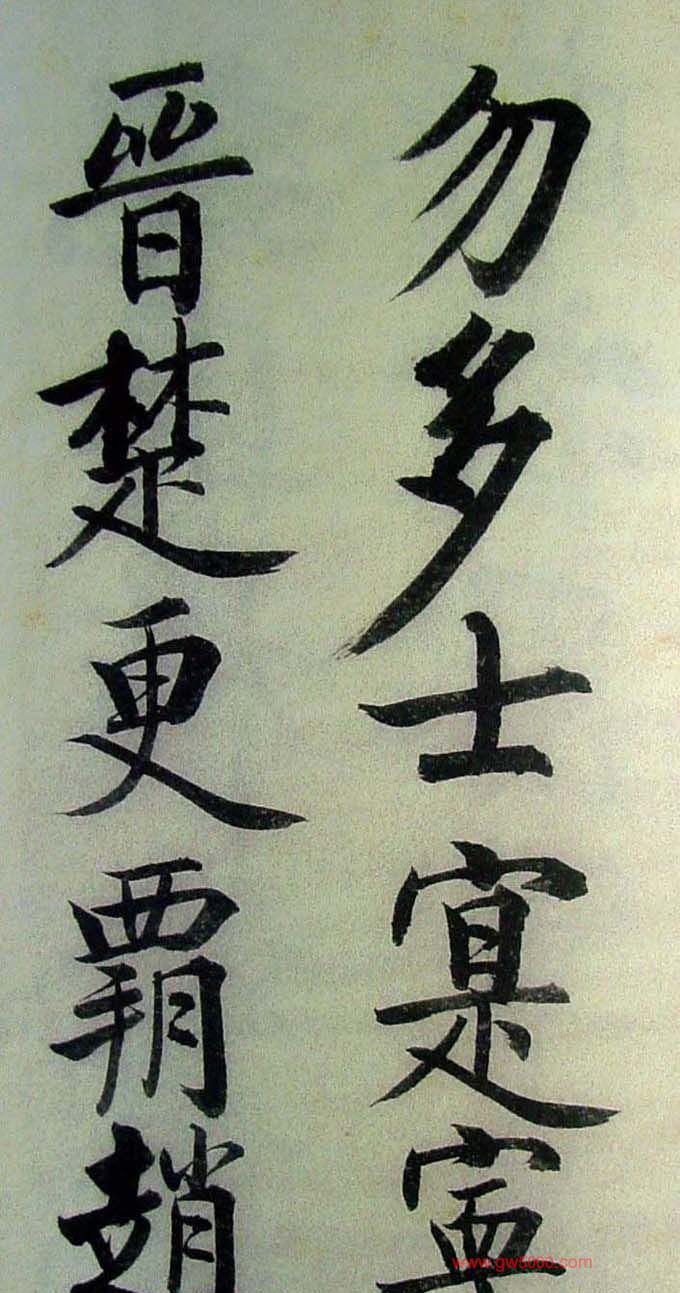 勿多士寔寧
晉楚更覇趙
www.gw5000.com